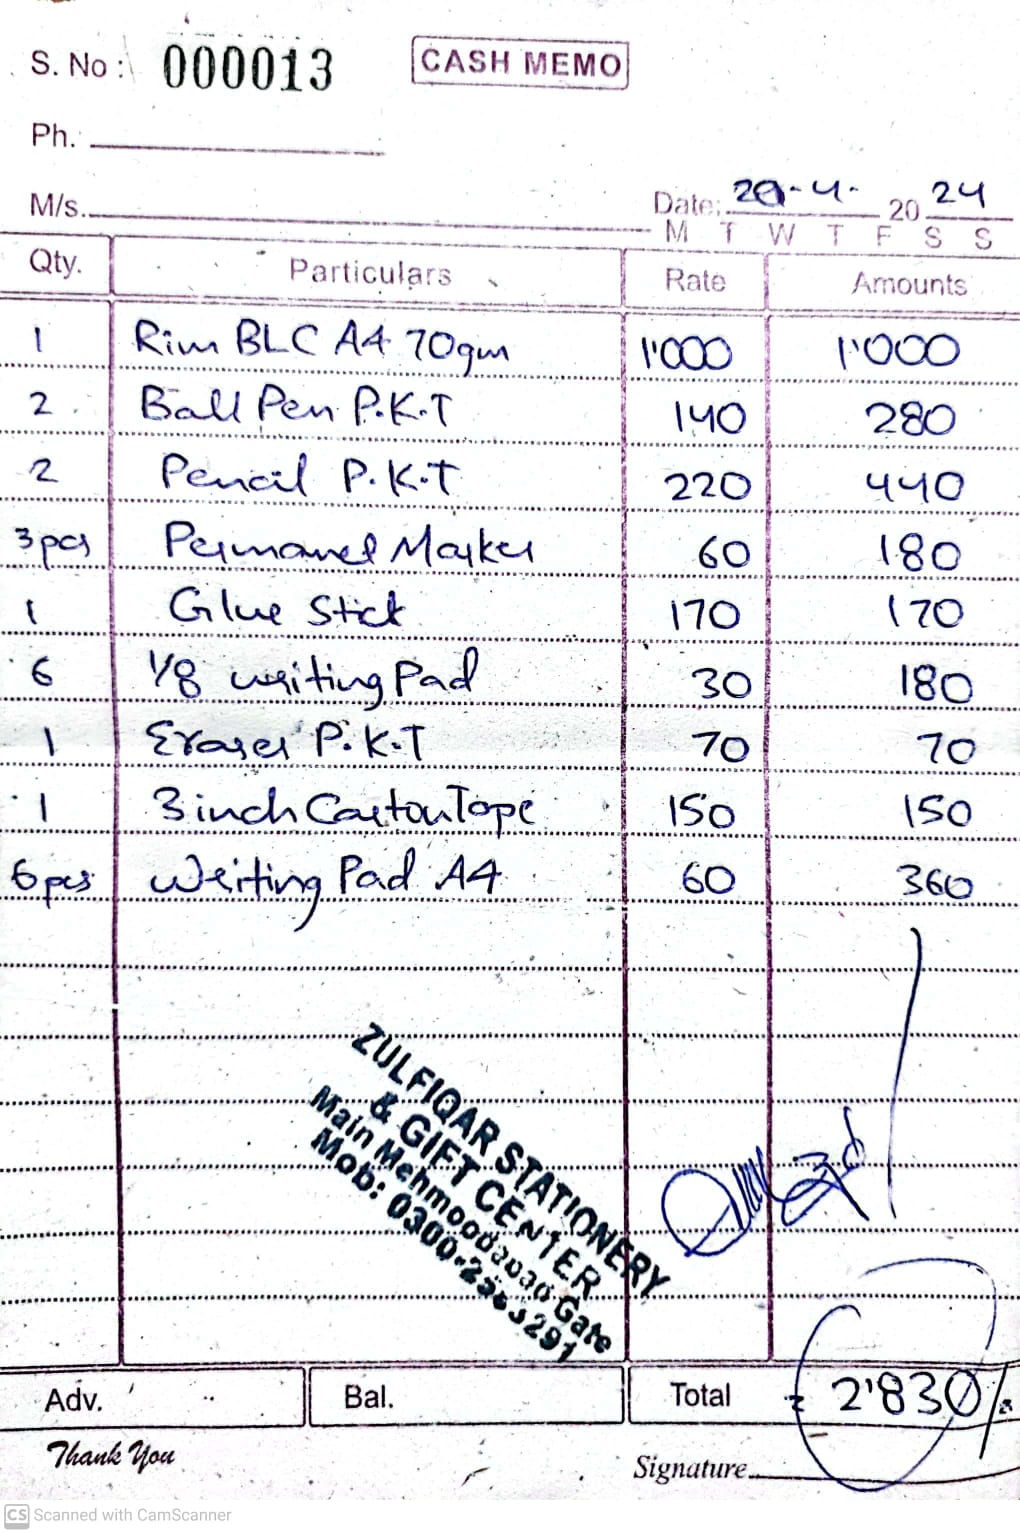 S. No : 000013 CASH MEMO
Ph.
M/s. Date: 20-4- 20 24
M T W T F S S
Qty. Particulars Rate Amounts
1 Rim BLC A4 70gm 1'000 1'000
2 Ball Pen P.K.T 140 280
2 Pencil P.K.T 220 440
3pcs Permanet Marker 60 180
1 Glue Stick 170 170
6 1/8 writing Pad 30 180
1 Eraser P.K.T 70 70
1 3 inch Carton Tape 150 150
6 pcs Writing Pad A4 60 360
ZULFIQAR STATIONERY
& GIFT CENTER
Main Mehmoodabad Gate
Mob:
Adv. Bal. Total 2'830/
Thank You
Signature
CS Scanned with CamScanner